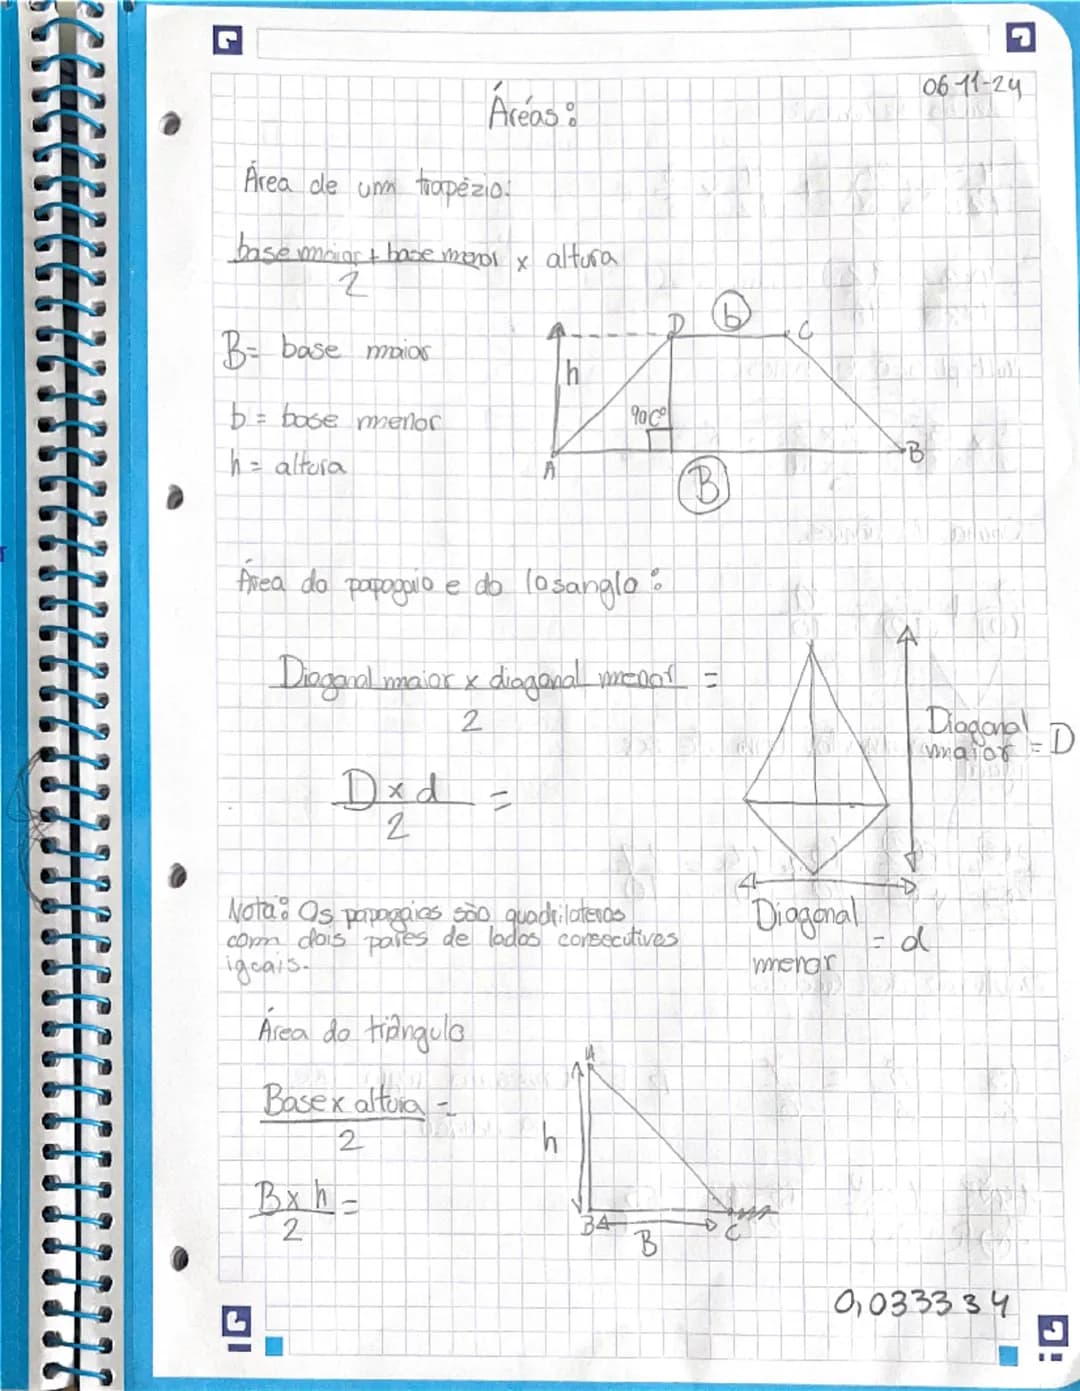 06-11-24
Áreas:
Área de um trapézio:
base maior + base menor x altura
2
B= base maior
b = base menor
h = altura
D b C
h
90cº
A B
B
Área do papagaio e do losanglo:
Diagonal maior x diagonal menor =
2
Diagonal
maior = D
D x d =
2
Nota: Os papagaios são quadriláteros
com dois pares de lados consecutivos
iguais.
Diagonal
menor = d
Área do triângulo
A
Base x altura =
2
h
B x h =
2
B C
B
0,033334